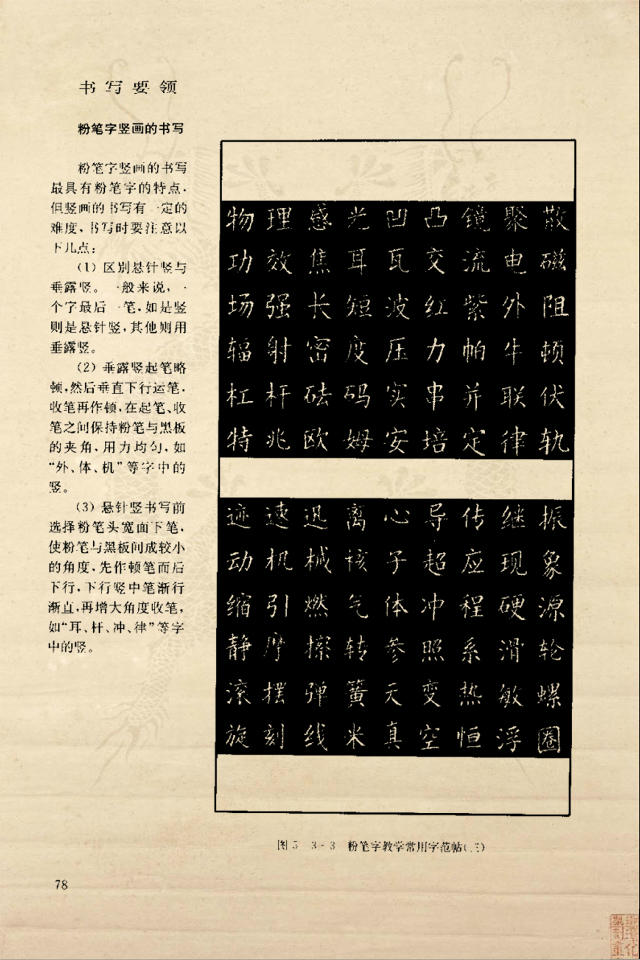 书写要领
粉笔字竖画的书写
粉笔字竖画的书写
最具有粉笔字的特点，
但竖画的书写有一定的
难度，书写时要注意以
下几点：
（1）区别悬针竖与
垂露竖。一般来说，一
个字最后一笔，如是竖
则是悬针竖，其他则用
垂露竖。
（2）垂露竖起笔略
顿，然后垂直下行运笔，
收笔再作顿，在起笔、收
笔之间保持粉笔与黑板
的夹角，用力均匀，如
“外、体、机”等字中的
竖。
（3）悬针竖书写前
选择粉笔头宽面下笔，
使粉笔与黑板间成较小
的角度，先作顿笔而后
下行，下行竖中笔渐行
渐直，再增大角度收笔，
如“耳、杆、冲、律”等字
中的竖。
物理感光凹凸镜聚散
功效焦耳瓦交流电磁
场强长短波红紫外阻
辐射密度压力帕牛顿
杠杆砝码实串并联伏
特兆欧姆安培定律轨
迹速迅离心导传继振
动机械核子超应现象
缩引燃气体冲程硬源
静摩擦转参照系滑轮
滚摆弹簧天变热敏螺
旋刻线米真空恒浮圈
图5-3-3 粉笔字教学常用字范帖(三)
78